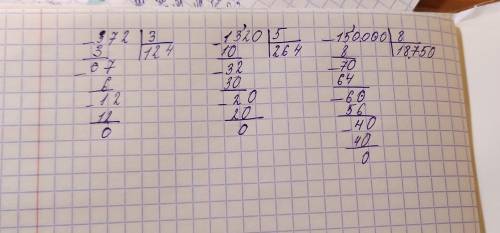 372 | 3
3 | 124
07
6
12
12
0
1320 | 5
10 | 264
32
30
20
20
0
150000 | 8
8 | 18750
70
64
60
56
40
40
0